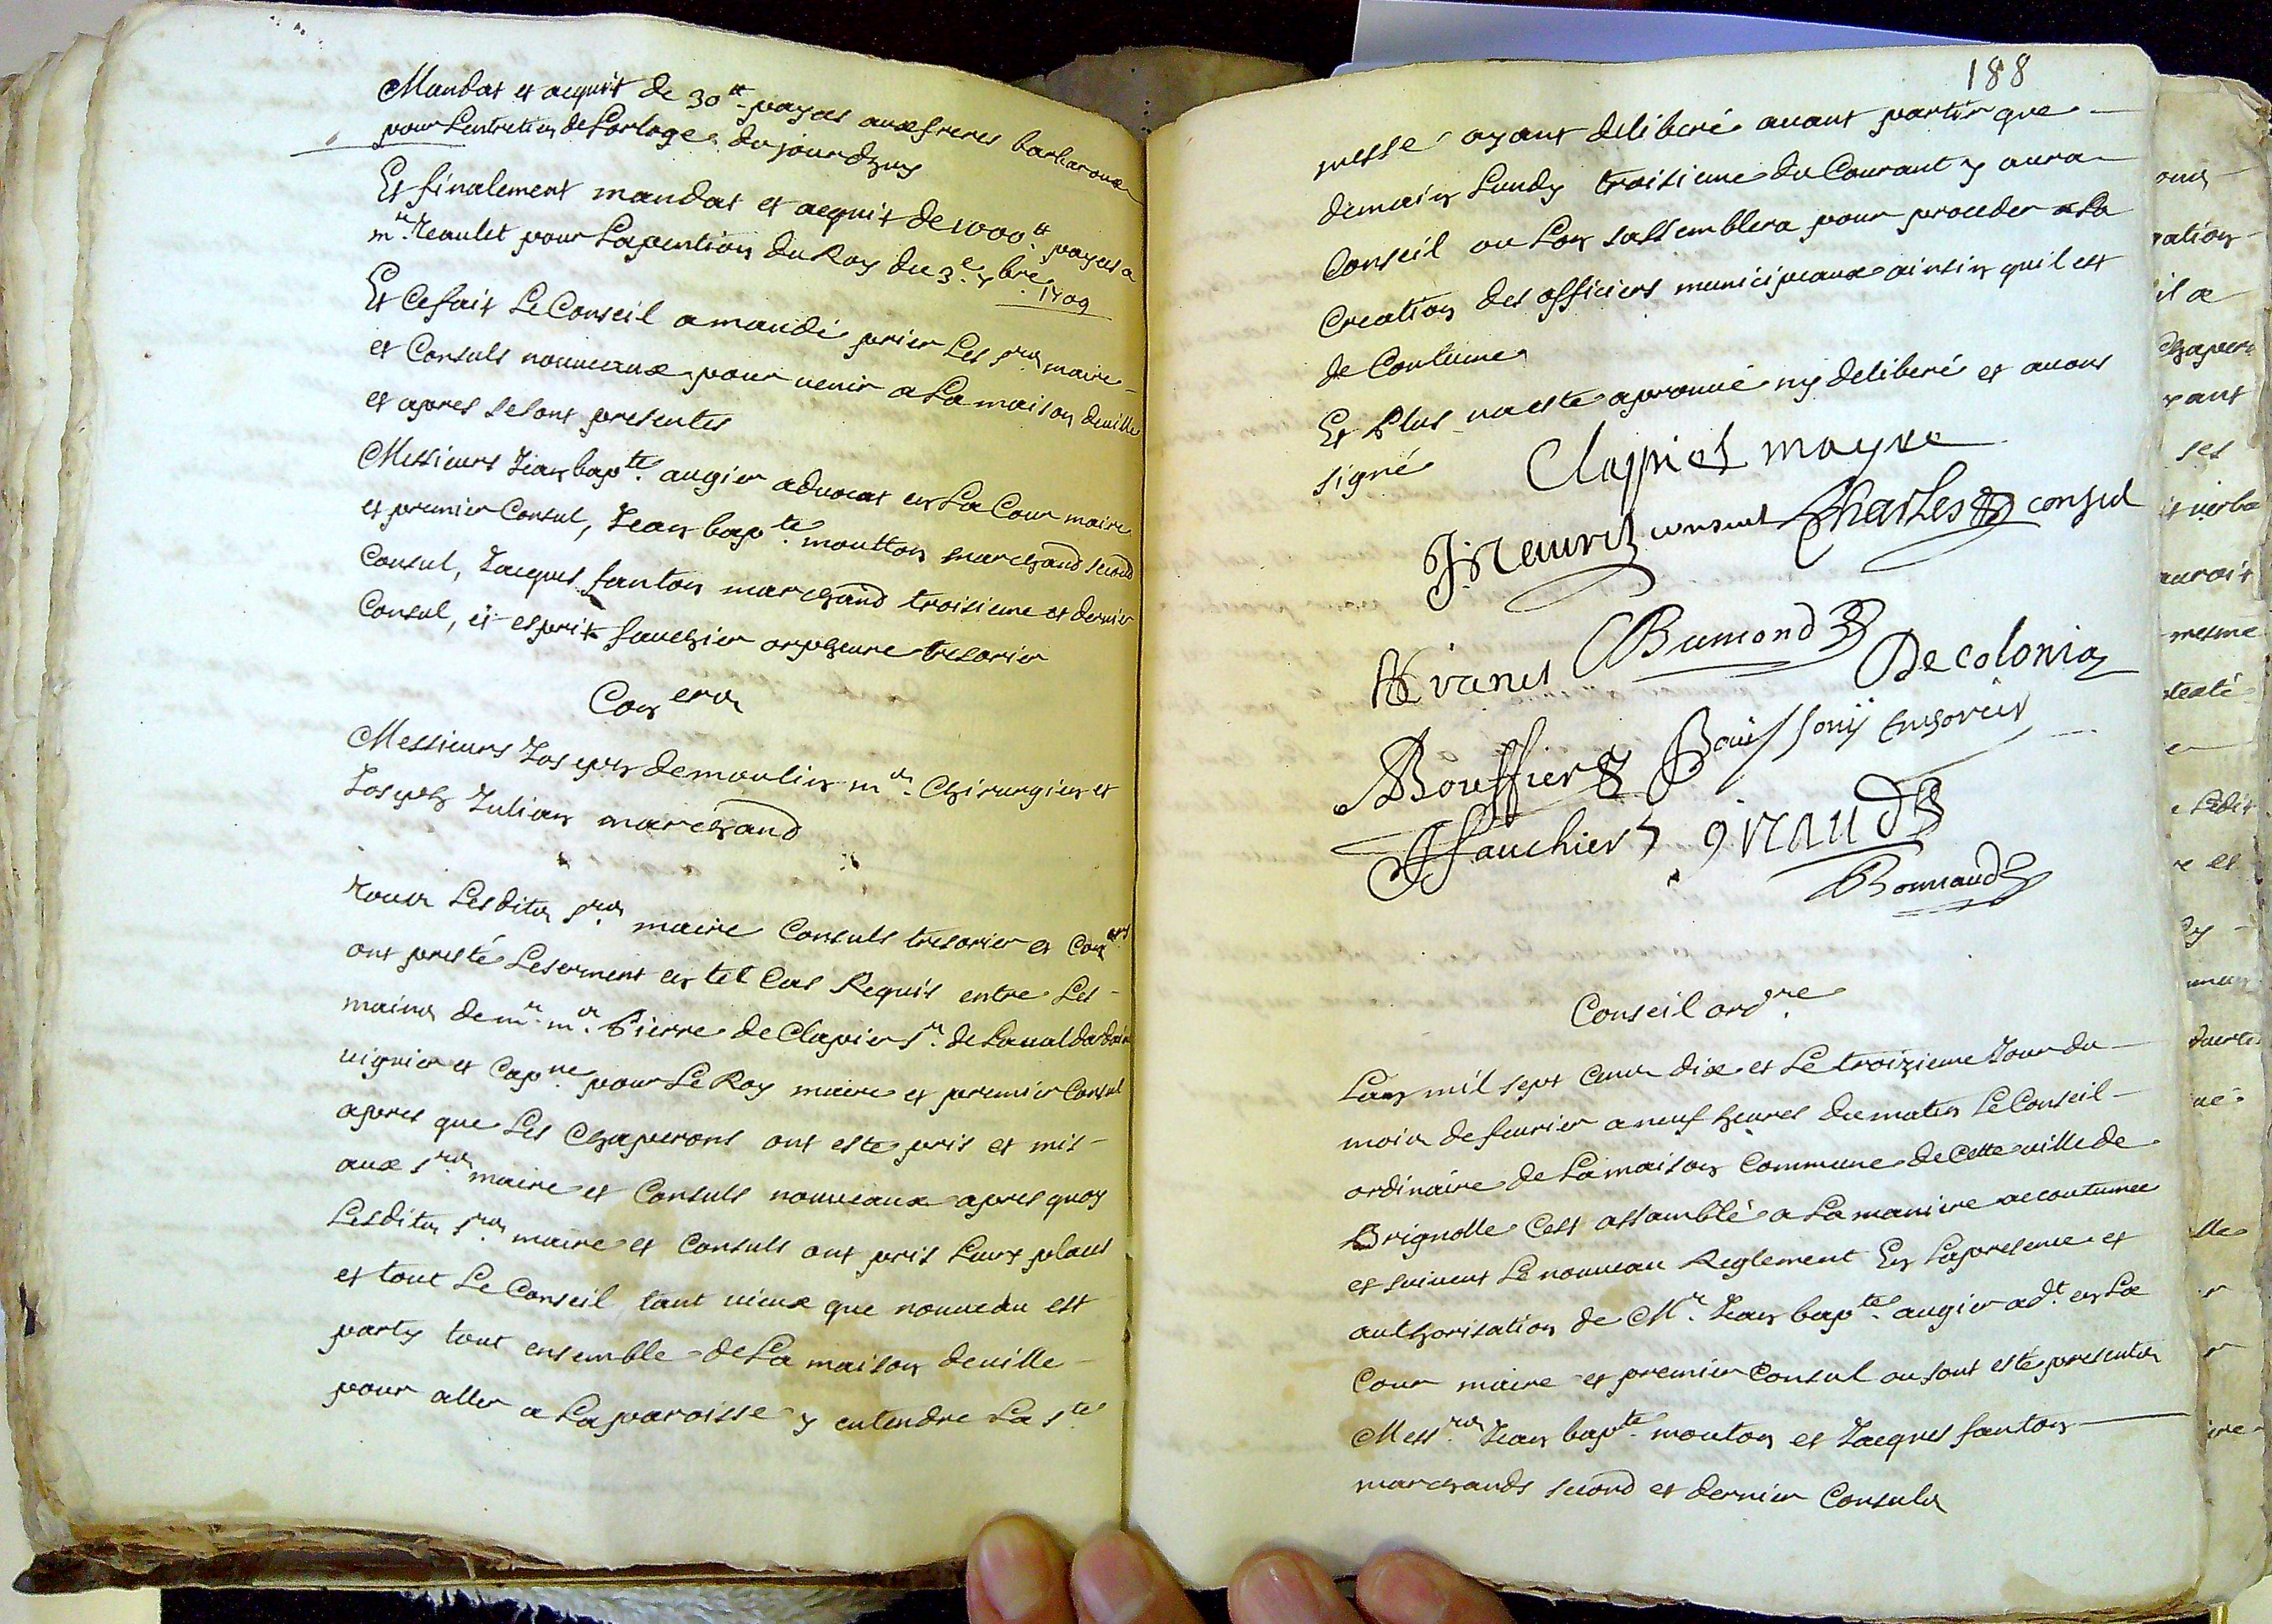 Mandat et acquit de 30tt payées aux freres barbaroux
pour Lentretien de Lorloge du jourdhuy
Et finalement mandat et acquit de 1000tt payees a
mr. Reaulet pour La pention du Roy du 3e. xbre. 1709
Et Ce fait Le Conseil a mandé prier Les srs. maire
et Consuls nouueaux pour uenir a La maison deuille
et apres se sont presentes
Messieurs Jean bapte. augier aduocat en La Cour maire
et premier Consul, Jean bapte. moutton marchand second
Consul, Jacques fanton marchand troisieme et dernier
Consul, et esprit fauchier orpheure tresorier
Coners
Messieurs Joseph demoulin me. Chirurgien et
Joseph Julian marchand
Tous Lesdits srs. maire Consuls tresorier et Coners
ont presté Le serment en tel Cas Requis entre Les
mains de mr. me. Pierre de Clapier sr. de Laual
uiguier et Capne. pour Le Roy maire et premier Consul
apres que Les Chaperons ont esté pris et mis
aux srs. maire et Consuls nouueaux apres quoy
Lesdits srs. maire et Consuls ont pris Leurs places
et tout Le Conseil tant uieux que nouueau est
party tout ensemble de La maison deuille
pour aller a La paroisse y entendre La ste.
188
messe ayant deliberé auant partir que
demain Lundy troisieme du Courant y aura
Conseil ou Lon sassemblera pour proceder a La
Creation des officiers municipeaux ainsin quil est
de Coutume
Et Plus na esté aprouué ny deliberé et auons
signé
Clapiés mayre
consul Charles consul
Decolonia
Bouffier Bouissony tresorier
Fauchier giraud
Bonnaud
Conseil ordre.
Lan mil sept Cens dix et Le troizieme Jour du
mois de feurier a neuf heures du matin Le Conseil
ordinaire de La maison Commune de Cette uille de
Brignolle Cest assamblé a La maniere accoutumee
et suiuent Le nouueau Reglement En La presence et
authorisation de Mr. Jean bapte. augier adt. en La
Cour maire et premier Consul ou sont esté presents
Messrs. Jean bapte. mouton et Jacques fanton
marchands second et dernier Consuls